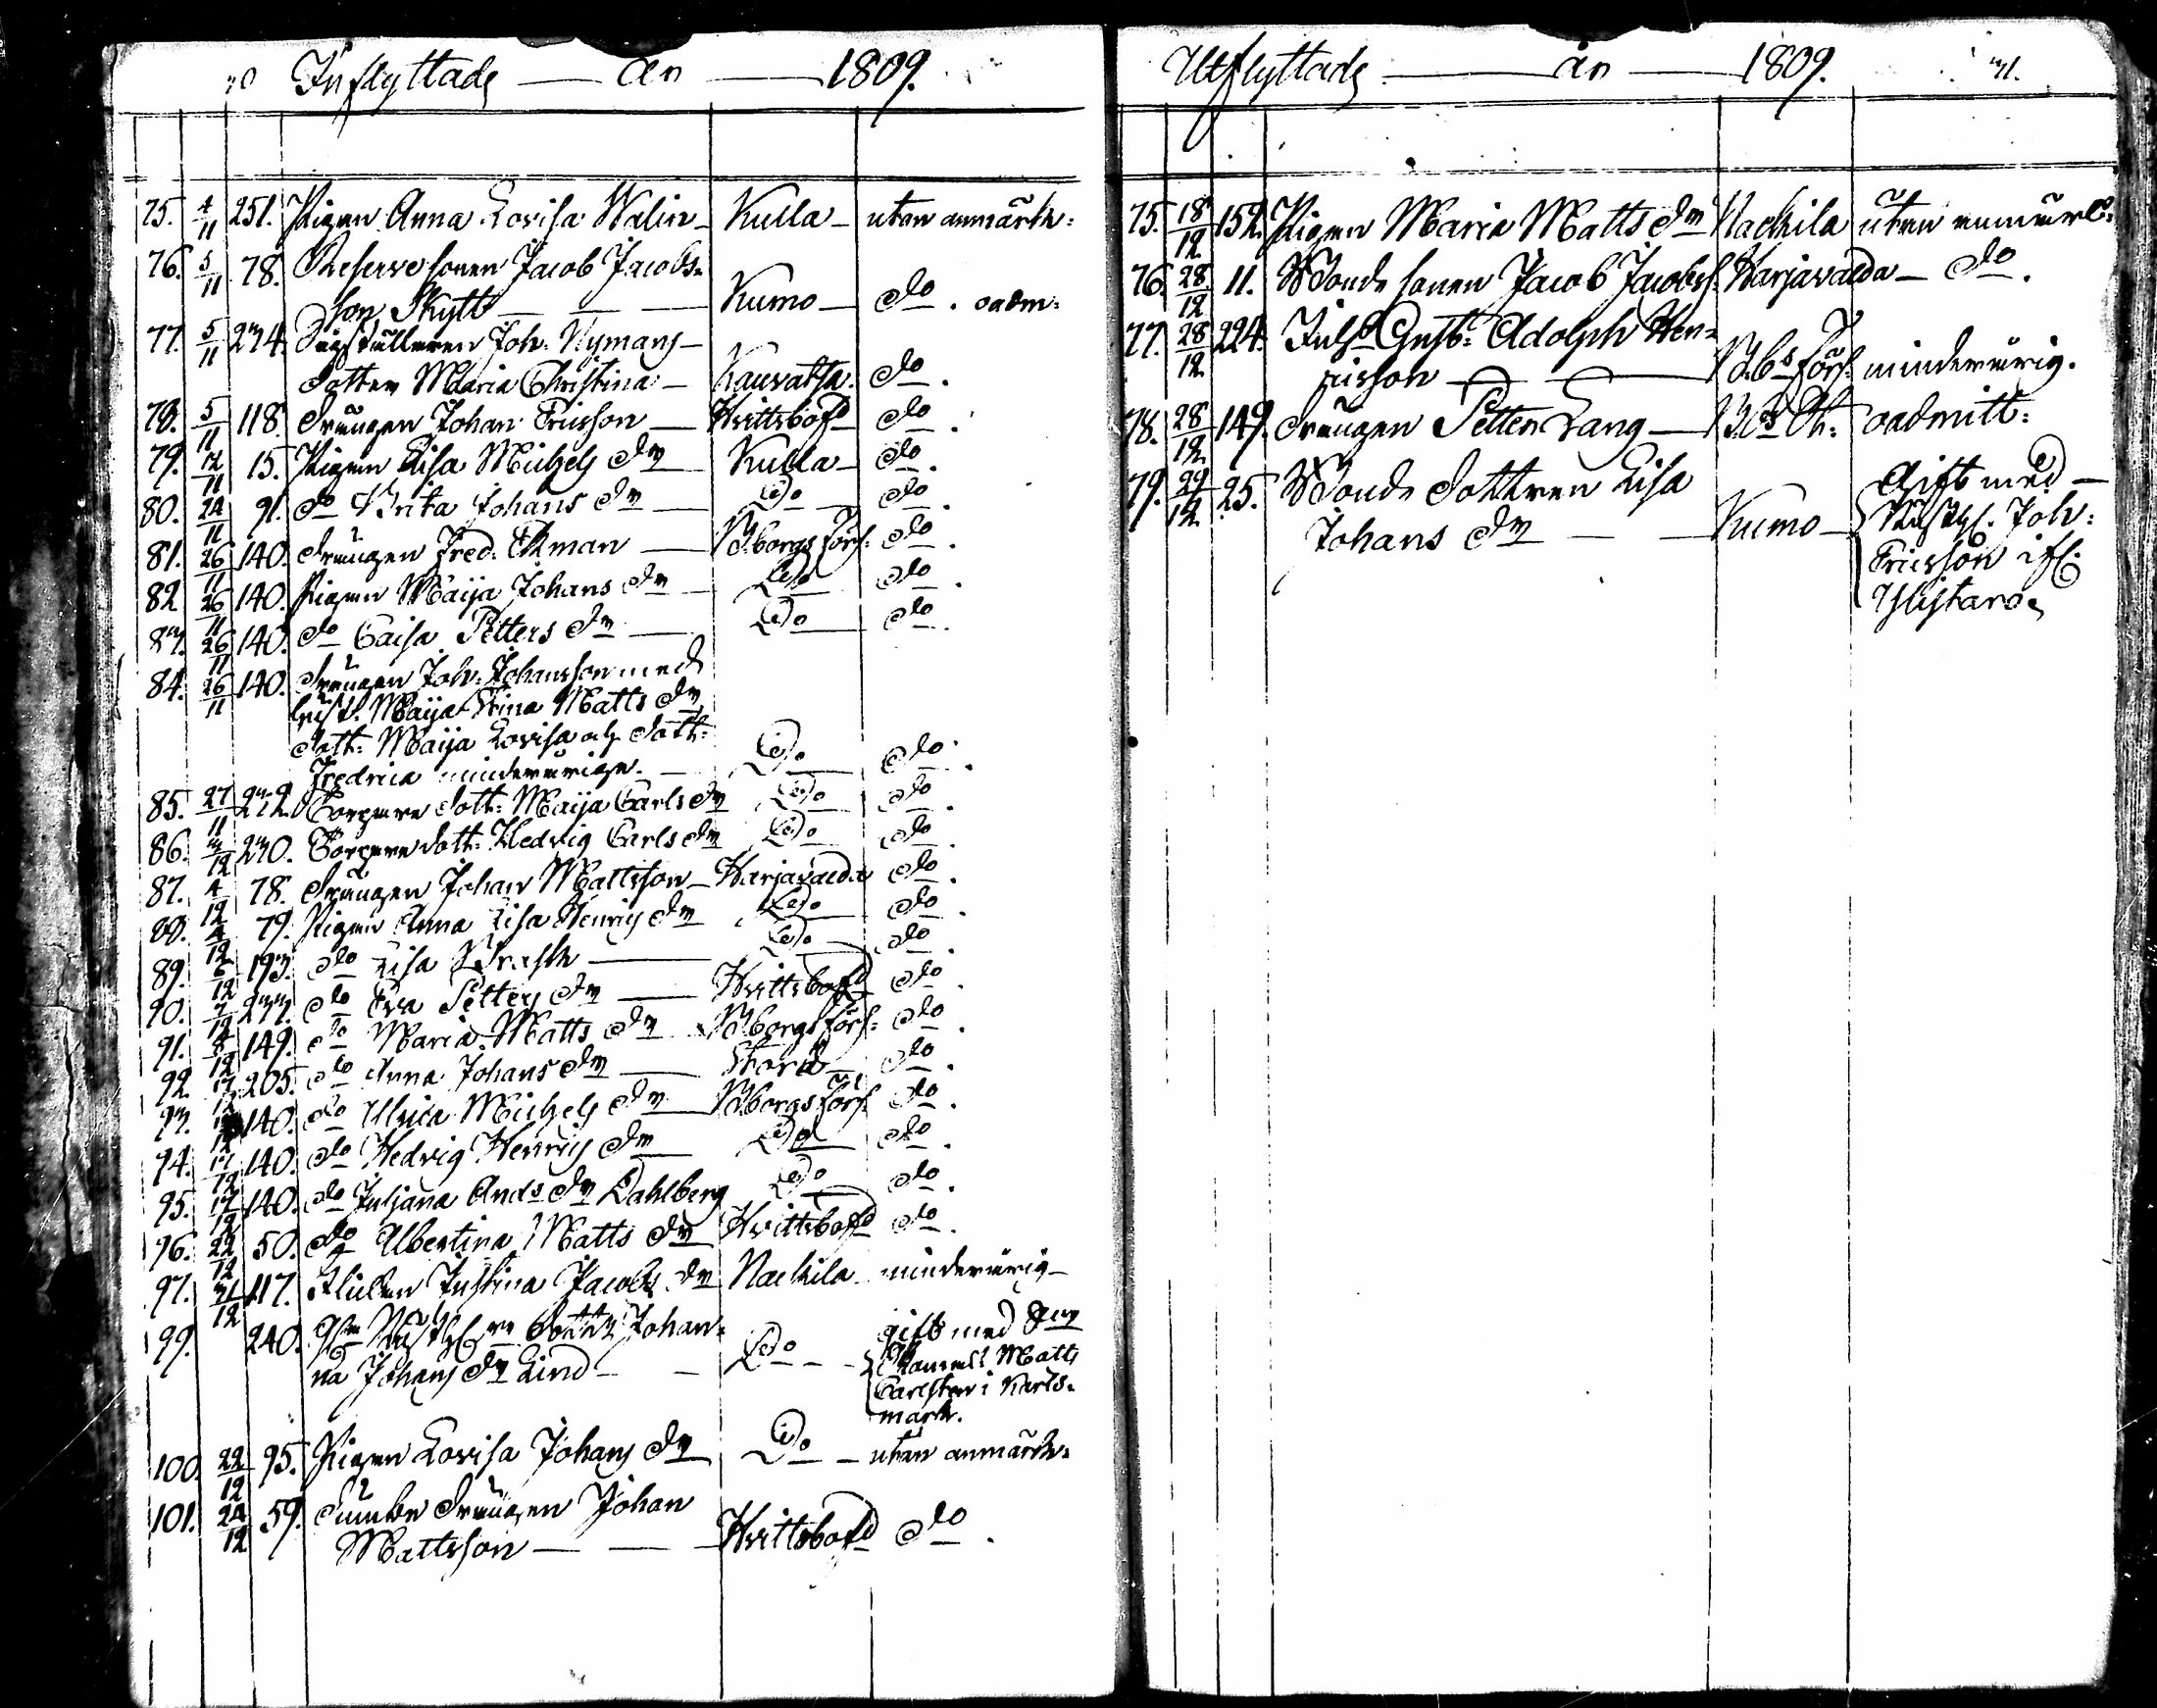 30 Inflyttade — År — 1809.
75. 4/11 251. Pigan Anna Lovisa Walin — Kulla — utan anmärkn:
76. 5/11 78. Reserve sonen Jacob Jacobs=
son Skytt — Kumo — do. oadm:
77. 5/11 234. Joh: Nymans
dotter Maria Christina — Kauvatsa. do.
78. 5/11 118. Drängen Johan Ericsson — Hvittisbofd do.
79. 12/11 15. Pigan Lisa Michels dr Kulla — do.
80. 24/11 91. do Brita Johans dr — Do do.
81. 26/11 140. Drängen Fred: Ekman — B:borgs förs: do.
82. 26/11 140. Pigan Maija Johans dr — Do do.
83. 26/11 140. do Caisa Petters dr — Do do.
84. 26/11 140. Drängen Joh: Johansson med
hust. Maija Stina Matts dr
dott: Maija Lovisa och dott:
Fredrica minderårige. — Do do.
85. 27/11 232. Torpare dott: Maija Carls dr Do do.
86. 3/12 230. Torpare dott: Hedvig Carls dr Do do.
87. 4/12 78. Drängen Johan Mattsson — Harjavalda do.
88. 4/12 79. Pigan Anna Lisa Henrics dr Do do.
89. 6/12 193. do Lisa Frisk — Do do.
90. 7/12 233. do Eva Petters dr — Hvittisbofd do.
91. 8/12 149. do Maria Matts dr B:borgs förs: do.
92. 17/12 205. do Anna Johans dr — do.
93. 140. do Ulrica Michels dr — B:borgs förs: do.
94. 17/12 140. do Hedvig Henrics dr Do do.
95. 17/12 140. do Juliana Ands dr Dahlberg Do do.
96. 22/12 50. do Albertina Matts dr Hvittisbofd do.
97. 31/12 117. Flickan Justina Jacobs dr Nackila minderårig —
99. 240. dotter Johan=
na Johans dr Lind — Do — gift med
Matts
Carlsten i Karls=
mark.
100. 22/12 95. Pigan Lovisa Johans dr Do — utan anmärkn:
101. 24/12 59. Drängen Johan
Mattsson — Hvittisbofd do.
Utflyttade — år — 1809. 31.
75. 18/12 152. Pigan Maria Matts dr Nackila utan anmärk:
76. 28/12 11. Bonde sonen Jacob Jacobss. Harjavalda — do.
77. 28/12 224. Gust: Adolph Hen=
ricsson — B:bs förs: minderårig.
78. 28/12 149. Drängen Petter Lang — B:bs St: oadmitt:
79. 29/12 25. Bonde dottren Lisa
Johans dr — Kumo — Gift med —
Joh:
Ericsson ifr:
Ylistaro.